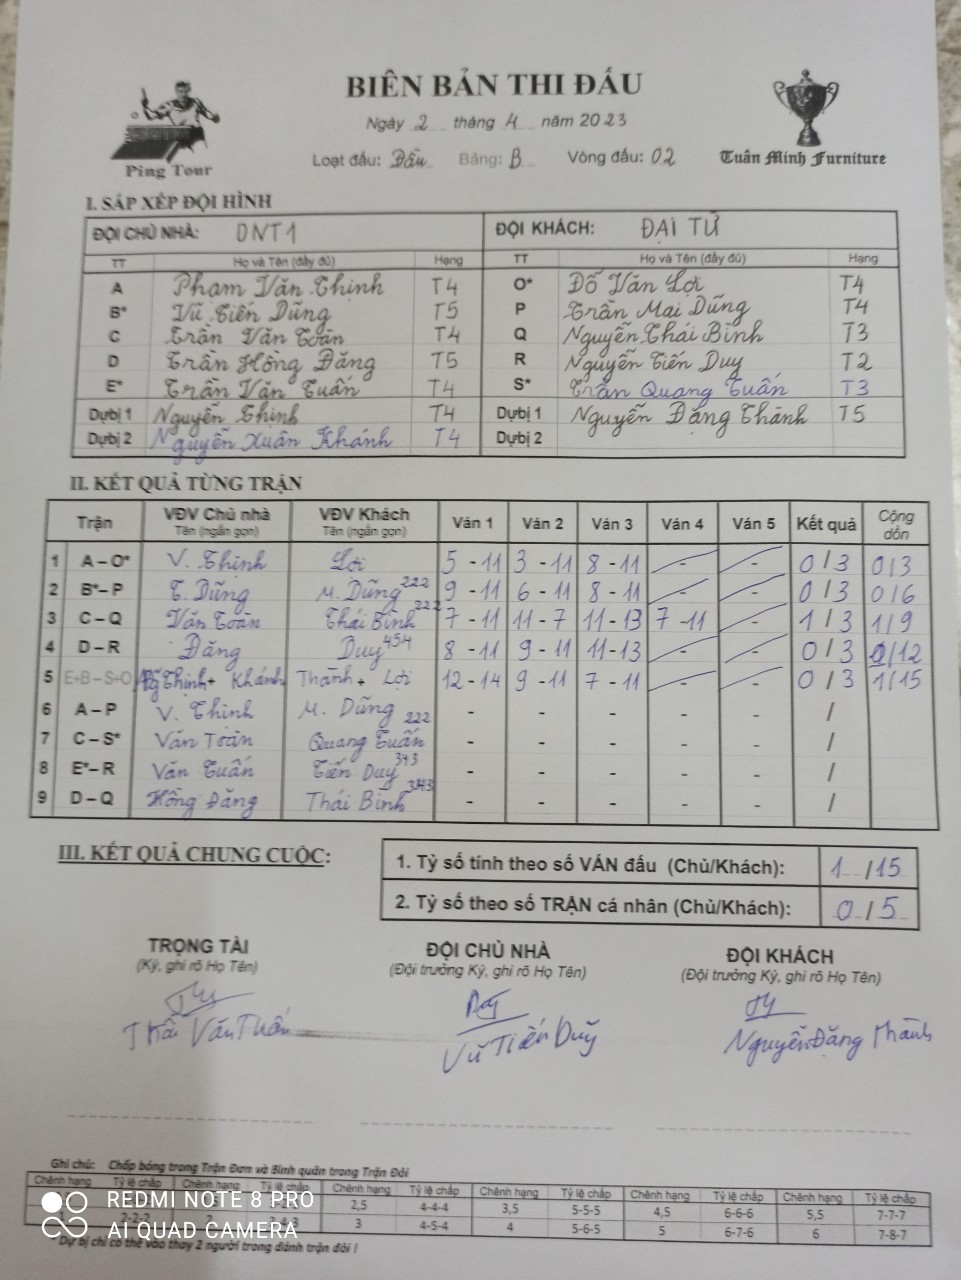 BIÊN BẢN THI ĐẤU
Ngày 2 tháng 4 năm 2023
Ping Tour
Loạt đấu: Đầu Bảng: B Vòng đấu: 02
Tuân Minh Furniture
I. SẮP XẾP ĐỘI HÌNH
ĐỘI CHỦ NHÀ: DNT1 ĐỘI KHÁCH: ĐẠI TỪ
TT Họ và Tên (đầy đủ) Hạng TT Họ và Tên (đầy đủ) Hạng
A Phạm Văn Thinh T4 O* Đỗ Văn Lợi T4
B* Vũ Tiến Dũng T5 P Trần Mai Dũng T4
C Trần Văn Toàn T4 Q Nguyễn Thái Bình T3
D Trần Hồng Đăng T5 R Nguyễn Tiến Duy T2
E* Trần Văn Tuấn T4 S* Trần Quang Tuấn T3
Dựbị 1 Nguyễn Thịnh T4 Dựbị 1 Nguyễn Đăng Thành T5
Dựbị 2 Nguyễn Xuân Khánh T4 Dựbị 2
II. KẾT QUẢ TỪNG TRẬN
Trận VĐV Chủ nhà VĐV Khách Ván 1 Ván 2 Ván 3 Ván 4 Ván 5 Kết quả Cộng dồn
Tên (ngắn gọn) Tên (ngắn gọn)
1 A – O* V. Thinh Lợi 5 - 11 3 - 11 8 - 11 - - 0 / 3 0/3
2 B*– P T. Dũng M. Dũng 222 9 - 11 6 - 11 8 - 11 - - 0 / 3 0/6
3 C – Q Văn Toàn Thái Bình 222 7 - 11 11 - 7 11 - 13 7 - 11 - 1 / 3 1/9
4 D – R Đăng Duy 454 8 - 11 9 - 11 11 - 13 - - 0 / 3 /12
5 E+B – S+O Thịnh + Khánh Thành + Lợi 12 - 14 9 - 11 7 - 11 - - 0 / 3 1/15
6 A – P V. Thinh M. Dũng - - - - - /
7 C – S* Văn Toàn Quang Tuấn 222 - - - - - /
8 E*– R Văn Tuấn Tiến Duy 343 - - - - - /
9 D – Q Hồng Đăng Thái Bình 343 - - - - - /
III. KẾT QUẢ CHUNG CUỘC:
1. Tỷ số tính theo số VÁN đấu (Chủ/Khách): 1 / 15
2. Tỷ số theo số TRẬN cá nhân (Chủ/Khách): 0 / 5
TRỌNG TÀI ĐỘI CHỦ NHÀ ĐỘI KHÁCH
(Ký, ghi rõ Họ Tên) (Đội trưởng Ký, ghi rõ Họ Tên) (Đội trưởng Ký, ghi rõ Họ Tên)
Văn Vũ Tiến Duy Nguyễn Đăng Thành
Ghi chú: Chấp bóng trong Trận Đơn và Bình quân trong Trận Đôi
Chênh hạng Tỷ lệ chấp Chênh hạng Tỷ lệ chấp Chênh hạng Tỷ lệ chấp Chênh hạng Tỷ lệ chấp Chênh hạng Tỷ lệ chấp Chênh hạng Tỷ lệ chấp
2,5 4-4-4 3,5 5-5-5 4,5 6-6-6 5,5 7-7-7
3 4-5-4 4 5-6-5 5 6-7-6 6 7-8-7
Dự bị chỉ có thể vào thay 2 người trong đánh trận đôi !
REDMI NOTE 8 PRO
AI QUAD CAMERA